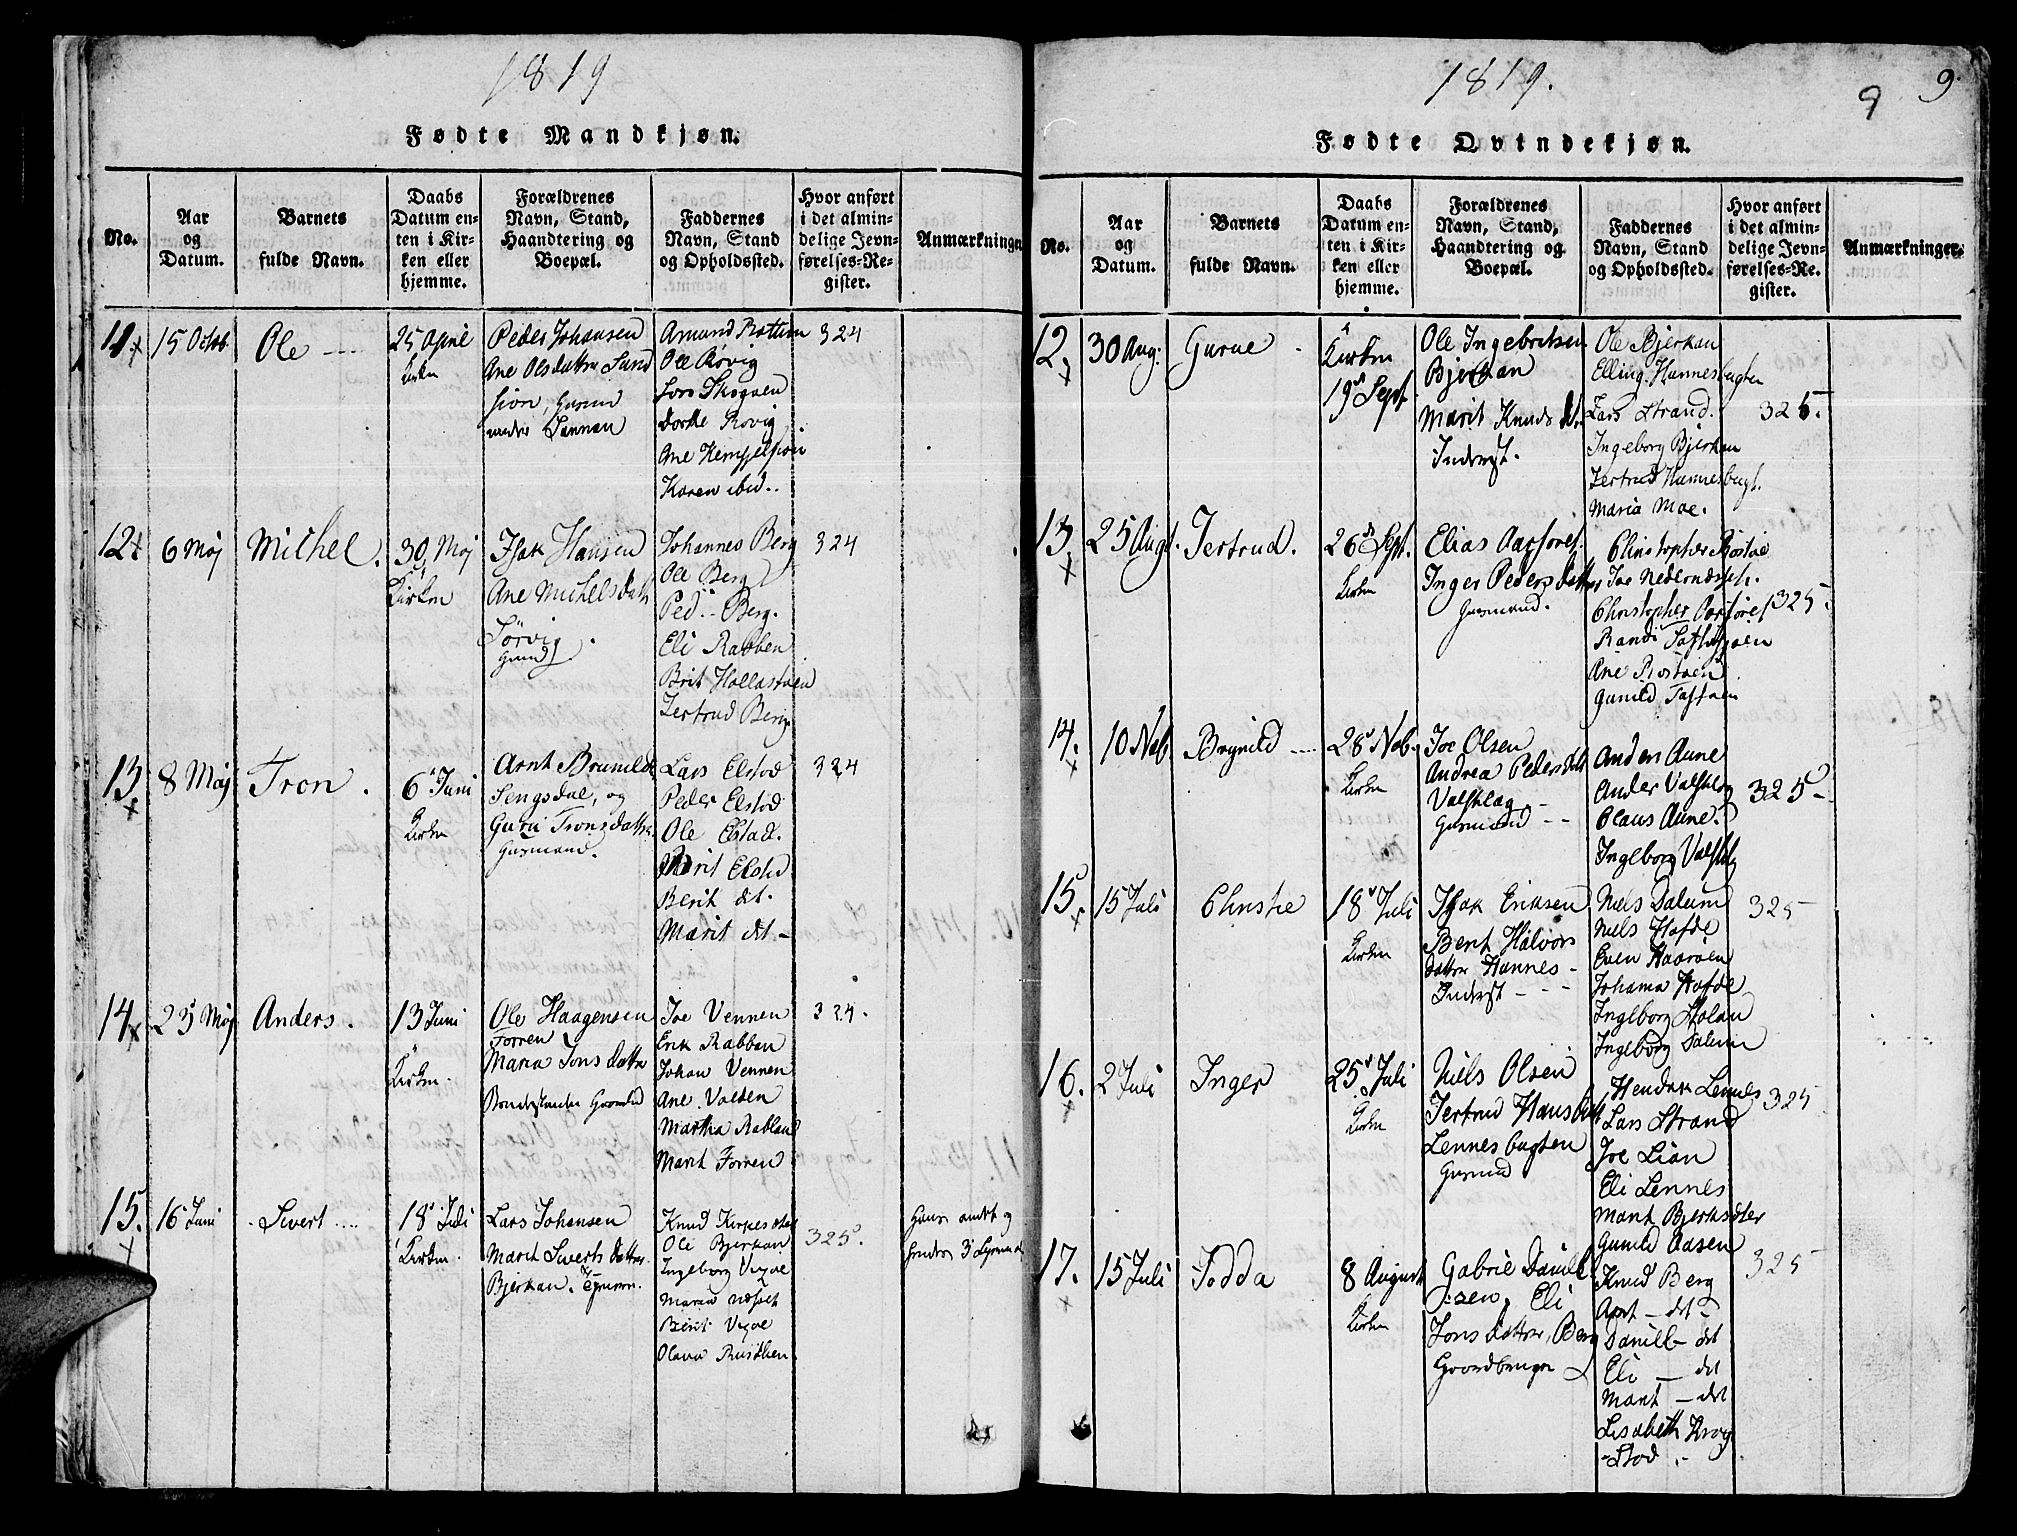 1819
Fødte Mandkjøn.
No.
Aar
og
Datum.
Barnets
fulde Navn.
Daabs
Datum en-
ten i Kir-
ken eller
hjemme.
Forældrenes
Navn, Stand,
Haandtering og
Boepæl.
Faddernes
Navn, Stand
og Opholdssted.
Hvor anført
i det almin-
delige Jevn-
førelses-Re-
gister.
Anmærkninger
11
15 Octob
Ole
25 April
Kirken
Peder Johansen
Ane Olsdatter Sand
Amund Bottum
Ole Røvig
Lars Skogaen
Dorthe Rovig
Ane
Karen ibid.
324
12
6 Maj
Michel.
30 Maj
Kirken
Isak Hansen
Ane Michelsdatt
Sørvig
Johannes Berg
Ole Berg
Ped. Berg.
Eli Rabben
Brit
Jertrud Berg
324
13
8 Maj
Tron.
6 Juni
Kirken
Arnt
og
Guru Tronsdatter
Gusmand.
Lars Elstad
Peder Elstad
Ole Elstad.
Marit Elstad
Berit dt.
Marit dt.
324
14
23 Maj
Anders.
13 Juni
Kirken.
Ole Haagensen
Forren
Maria Jons datter
Joe Vennen
Erik Rabben
Johan Vennen
Ane Valsen
Martha
Marit Forren
324.
15.
16 Juni
Sivert
18 Juli
Kirken.
Lars Johansen
Marit Siverts datter
Bjerkan.
Knud
Ole Bjerkan
Ingeborg
Maren
Berit
Olava
325.
1819.
9
9
Fødte Qvindekjøn.
No.
Aar
og
Datum.
Barnets
fulde Navn.
Daabs
Datum en-
ten i Kir-
ken eller
hjemme.
Forældrenes
Navn, Stand,
Haandtering og
Boepæl.
Faddernes
Navn, Stand
og Opholdssted.
Hvor anført
i det almin-
delige Jevn-
førelses-Re-
gister.
Anmærkninger.
12.
30 Aug.
Gurue
i
Kirken
19 Sept.
Ole Ingebritsen
Bjerkan
Marit Knuds dt.
Inderst.
Ole Bjerkan
Elling Hannesbugten
Lars Strand.
Ingeborg Bjerkan
Jertrud Hannesbugt.
Maria Moe.
325.
13.
25 Augt.
Jertrud.
26 Sept.
Kirken
Elias Aarsoret
Inger Peders datter
Gusmand.
Christopher
Joe
Christopher
Randi
Ane
Gunild
325.
14.
10 Nob
Brynild
28 Nob.
Kirken
Joe Olsen
Andrea Pedersdatt
Valsklag
Gusmand
Anders Aune
Anders Valsklag
Claus Aune.
Ingeborg Valskl
325
15
15 Juli
Christie
18 Juli
Kirken
Isak Eriksen
Berit Halvors
datter Hannes
Inderst
Niels Dalum
Niels Hofde
Even
Johanna Hofde
Ingeborg Holan
Ingeborg Dalum
325
16.
2 Juli
Inger
25 Juli
Kirken
Niels Olsen
Jertrud Hans datt
Lennesbugten
Gusmand
Hendrik Lennes
Lars Strand
Joe Lian
Eli Lennes
Marit
Gunild Aasen
325
17.
15 Juli
Jodda
8 August
Kirken
Gabriel Daniel
sen, Eli
Jons datter, Berg
Gaardbruger
Knud Berg
Arnt - dt
Daniel - det
Eli - det
Marit - det
Lisabeth Krog
-stad.
325